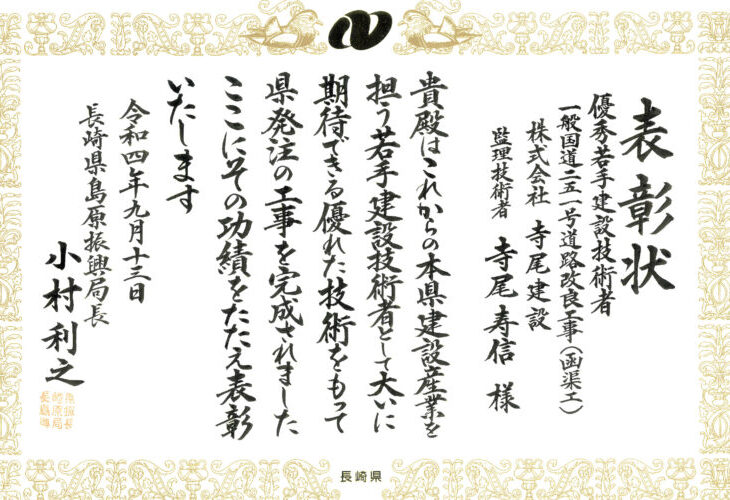 表彰状
優秀若手建設技術者
一般国道二五一号道路改良工事(函渠工)
株式会社 寺尾建設
監理技術者 寺尾寿信 様
貴殿はこれからの本県建設産業を
担う若手建設技術者として大いに
期待できる優れた技術をもって
県発注の工事を完成されました
ここにその功績をたたえ表彰
いたします
令和四年九月十三日
長崎県島原振興局長
小村利之
長崎県